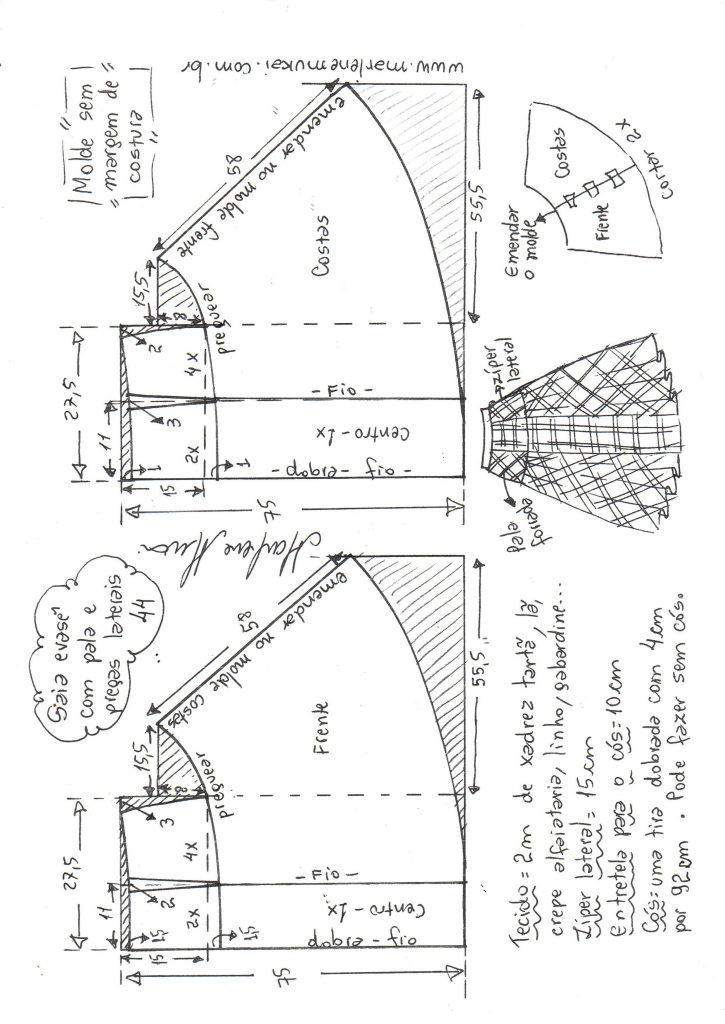 www.marlenemukai.com.br
"Molde sem
"margem de"
costura
Saia evasê
com pala e
pregas laterais
44
27,5
11
15,5
58
emendar no molde frente
8
preguear
2
3
1
4x
2x
15
1
Costas
- Fio -
Centro - 1x
- dobra - fio -
75
55,5
Emendar
o molde
Costas
Frente
Cortar 2x
Zíper
lateral
Pala
forrada
Marlene Mukai
27,5
11
15,5
58
emendar no molde costas
8
preguear
3
2
1,5
4x
2x
15
1,5
Frente
- Fio -
Centro - 1x
dobra - fio
75
55,5
Tecido = 2m de xadrez tartã, lã,
crepe alfaiataria, linho, gabardine...
Zíper lateral = 15cm
Entretela para o cós = 10cm
Cós = uma tira dobrada com 4cm
por 92cm. Pode fazer sem cós.